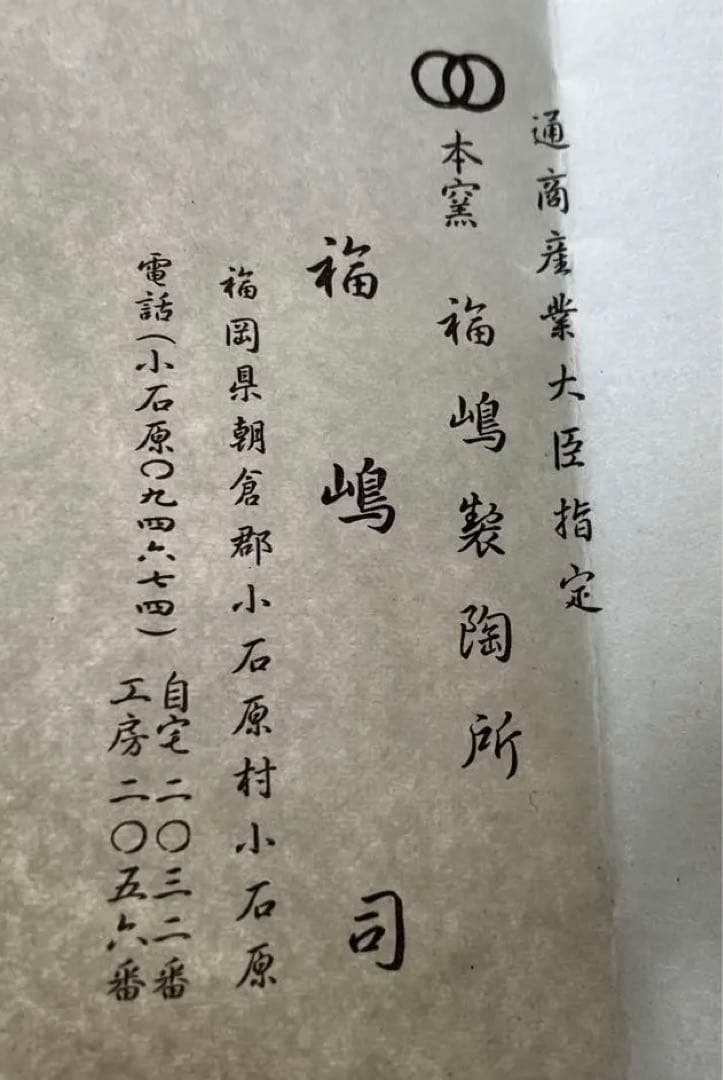 通商産業大臣指定
本窯 福嶋製陶所
福嶋司
福岡県朝倉郡小石原村小石原
電話(小石原〇九四六七四)
自宅 二〇三二番
工房 二〇五六番